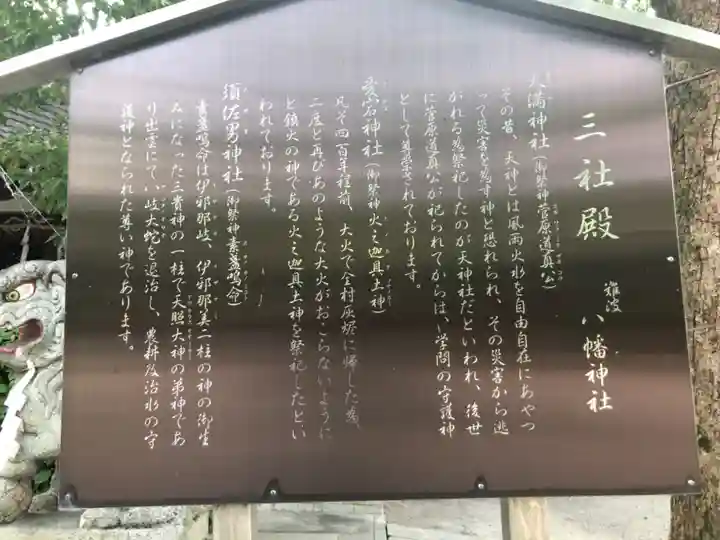 三社殿
難波 八幡神社
天満神社(御祭神菅原道真公)
その昔、天神とは風雨火水を自由自在にあやつ
って災害を為す神と恐れられ、その災害から逃
がれる為祭祀したのが天神社だといわれ、後世
に菅原道真公が祀られてからは、学問の守護神
として尊崇されております。
愛宕神社(御祭神火之迦具土神)
凡そ四百年程前、大火で全村灰燼に帰した為
二度と再びあのような大火がおこらないように
と鎮火の神である火之迦具土神を祭祀したとい
われております。
須佐男神社(御祭神素盞嗚命)
素盞嗚命は伊邪那岐、伊邪那美二柱の神の御生
みになった三貴神の一柱で天照大神の弟神であ
り出雲にて八岐大蛇を退治し、農耕及治水の守
護神となられた尊い神であります。